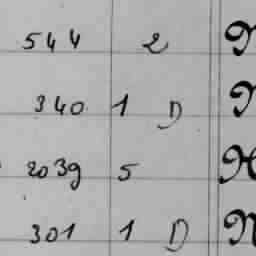 544 2
340 1 D
2039 5
301 1 D